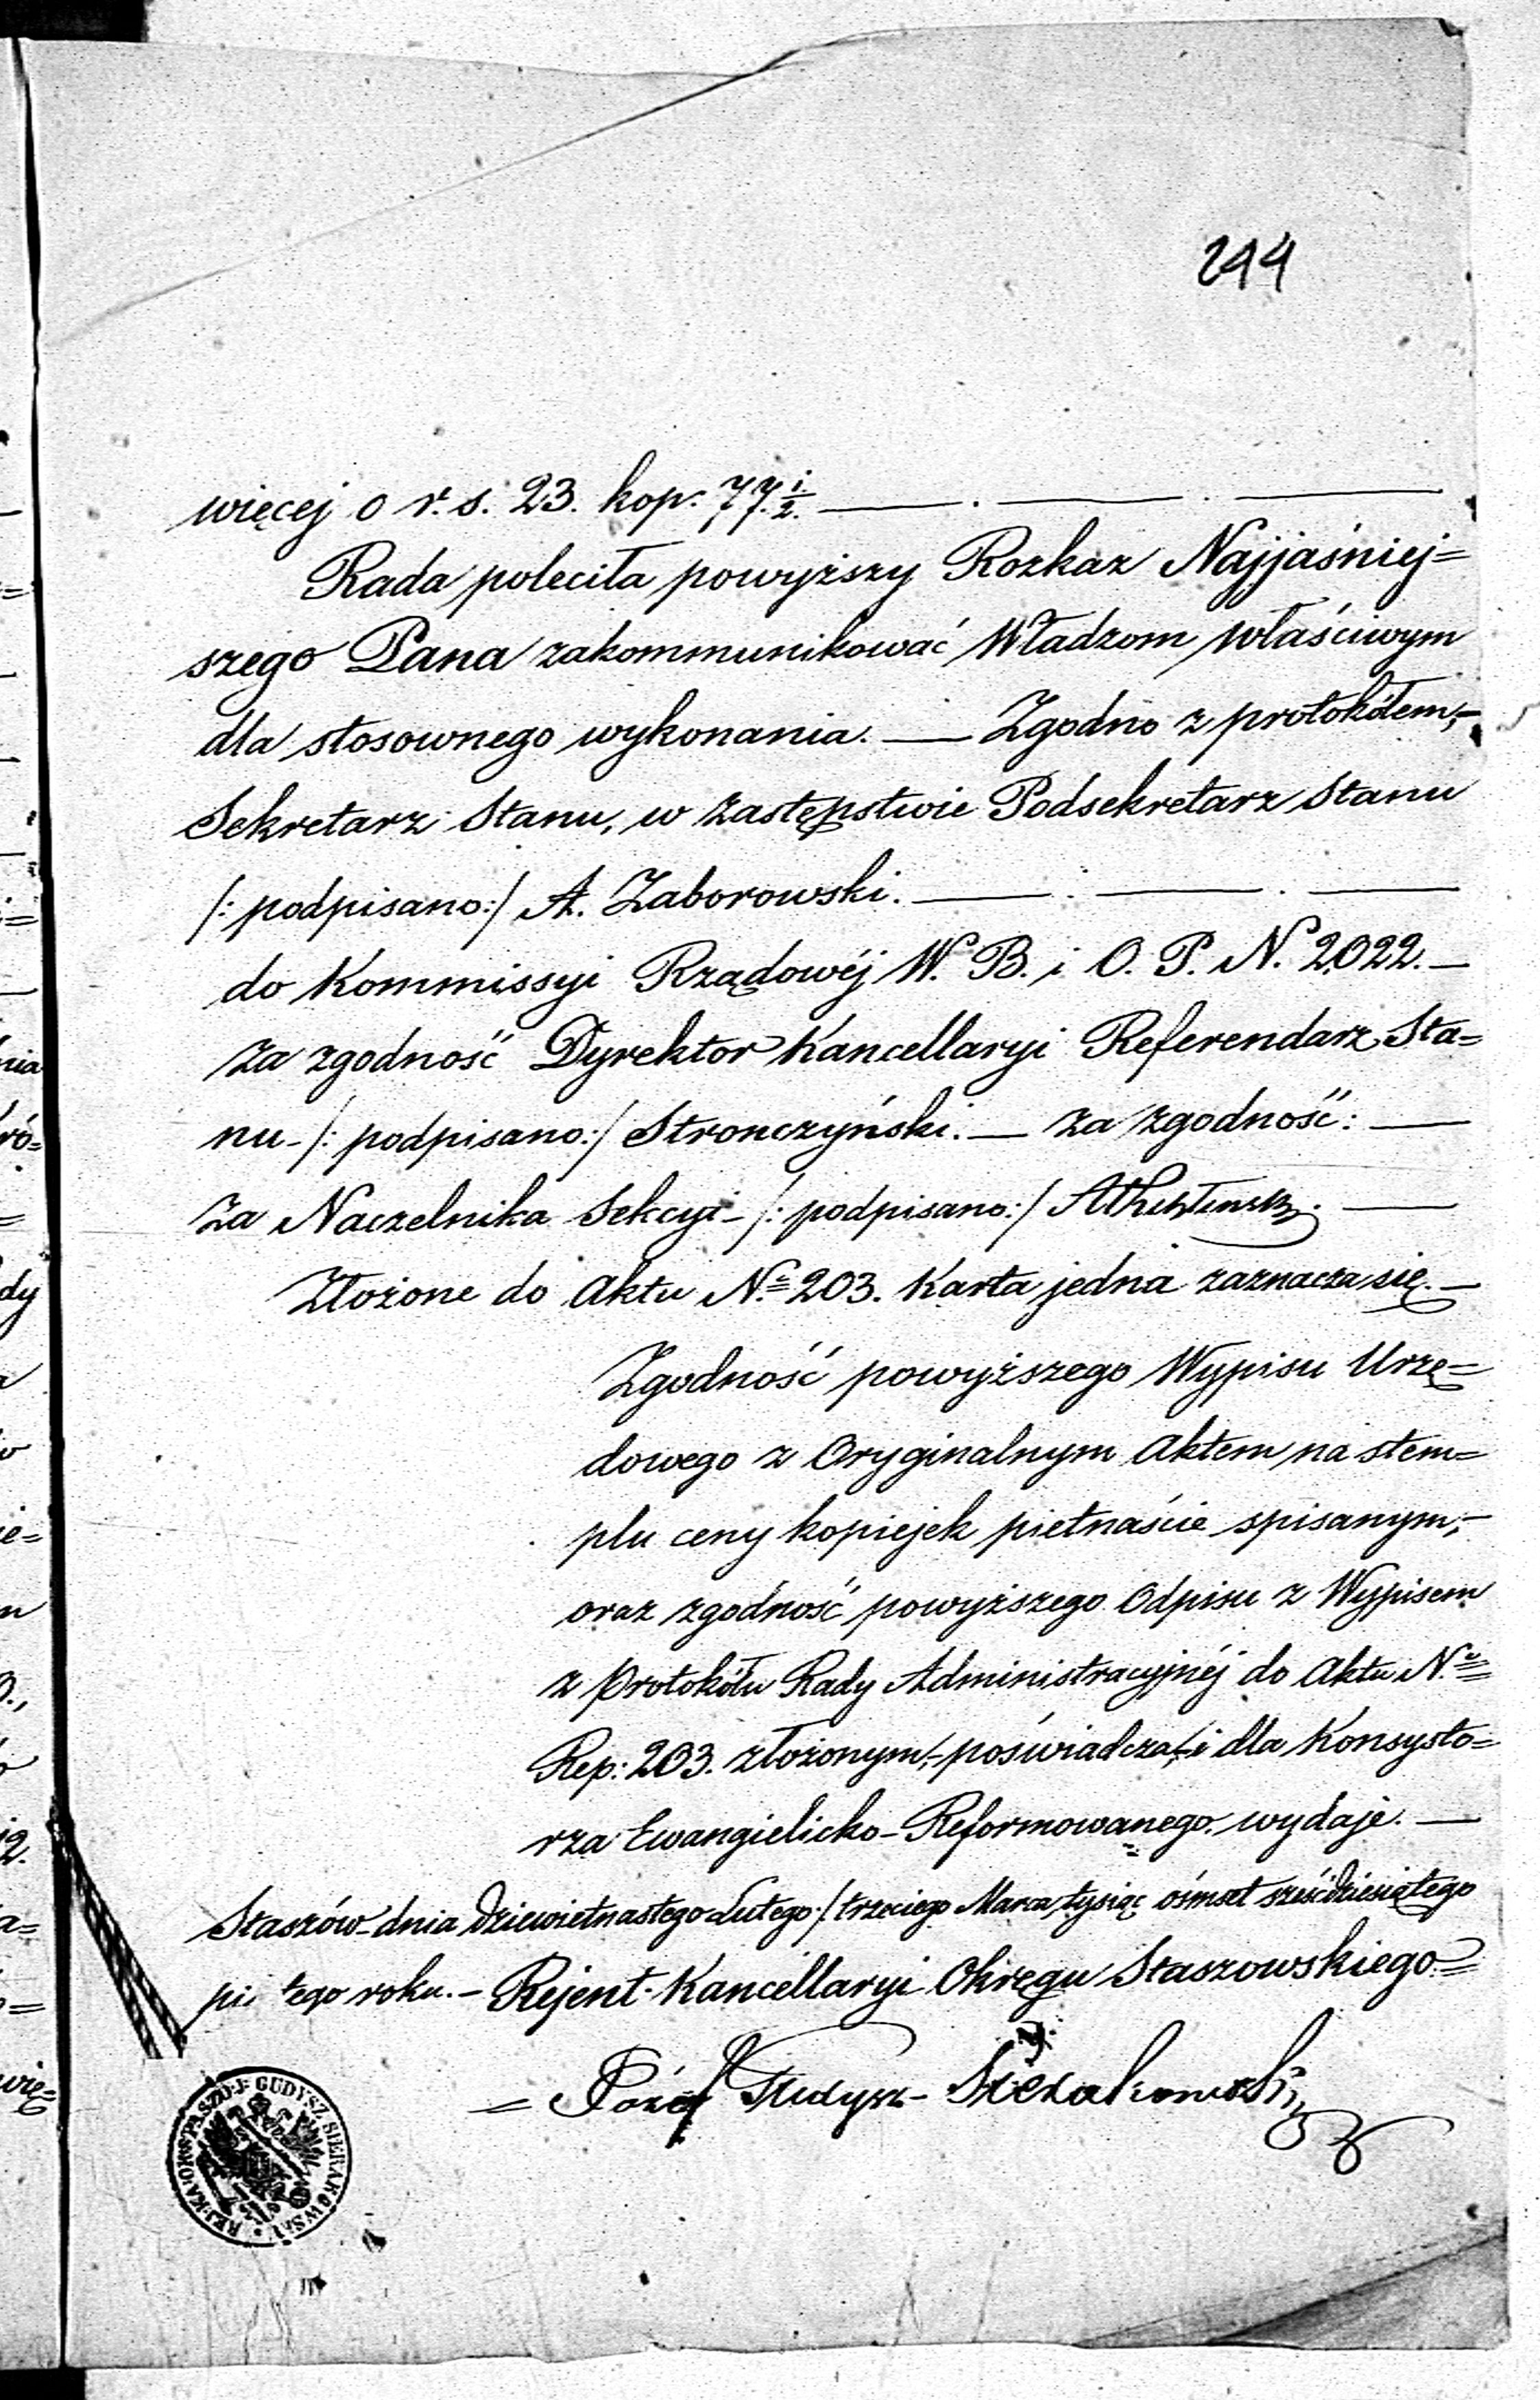 244
więcej o r. s. 23. kop: 77.½.
Rada poleciła powyższy Rozkaz Najjaśniej=
szego Pana zakommunikować Władzom właściwym
dla stosownego wykonania. — Zgodno z protokółem,-
Sekretarz Stanu, w zastępstwie Podsekretarz Stanu
/: podpisano:/ A. Zaborowski.
do Kommissyi Rządowéj W. B. i O. P. N. 2022. —
Za zgodność Dyrektor Kancellaryi Referendarz Sta=
nu - /: podpisano:/ Stronczyński. — Za zgodność: —
Za Naczelnika Sekcyi - /: podpisano:/
Złożone do Aktu N.º 203. Karta jedna zaznacza się. —
Zgodność powyższego Wypisu Urzę=
dowego z Oryginalnym Aktem na stem=
plu ceny kopiejek pietnaście spisanym,-
oraz zgodność powyższego Odpisu z Wypisem
z Protokółu Rady Administracyjnéj do Aktu N.º
Rep: 203. złożonym,- poświadcza,- i dla Konsysto=
rza Ewangielicko-Reformowanego wydaje. —
Staszów dnia dziewiętnastego Lutego / trzeciego Marca tysiąc ośmset sześćdziesiątego
pi tego roku. - Rejent Kancellaryi Okręgu Staszowskiego =
= Józef Gudysz - Sierakowski
REJ: KA: OK: STASZ: J: GUDYSZ SIERAKOWSKI